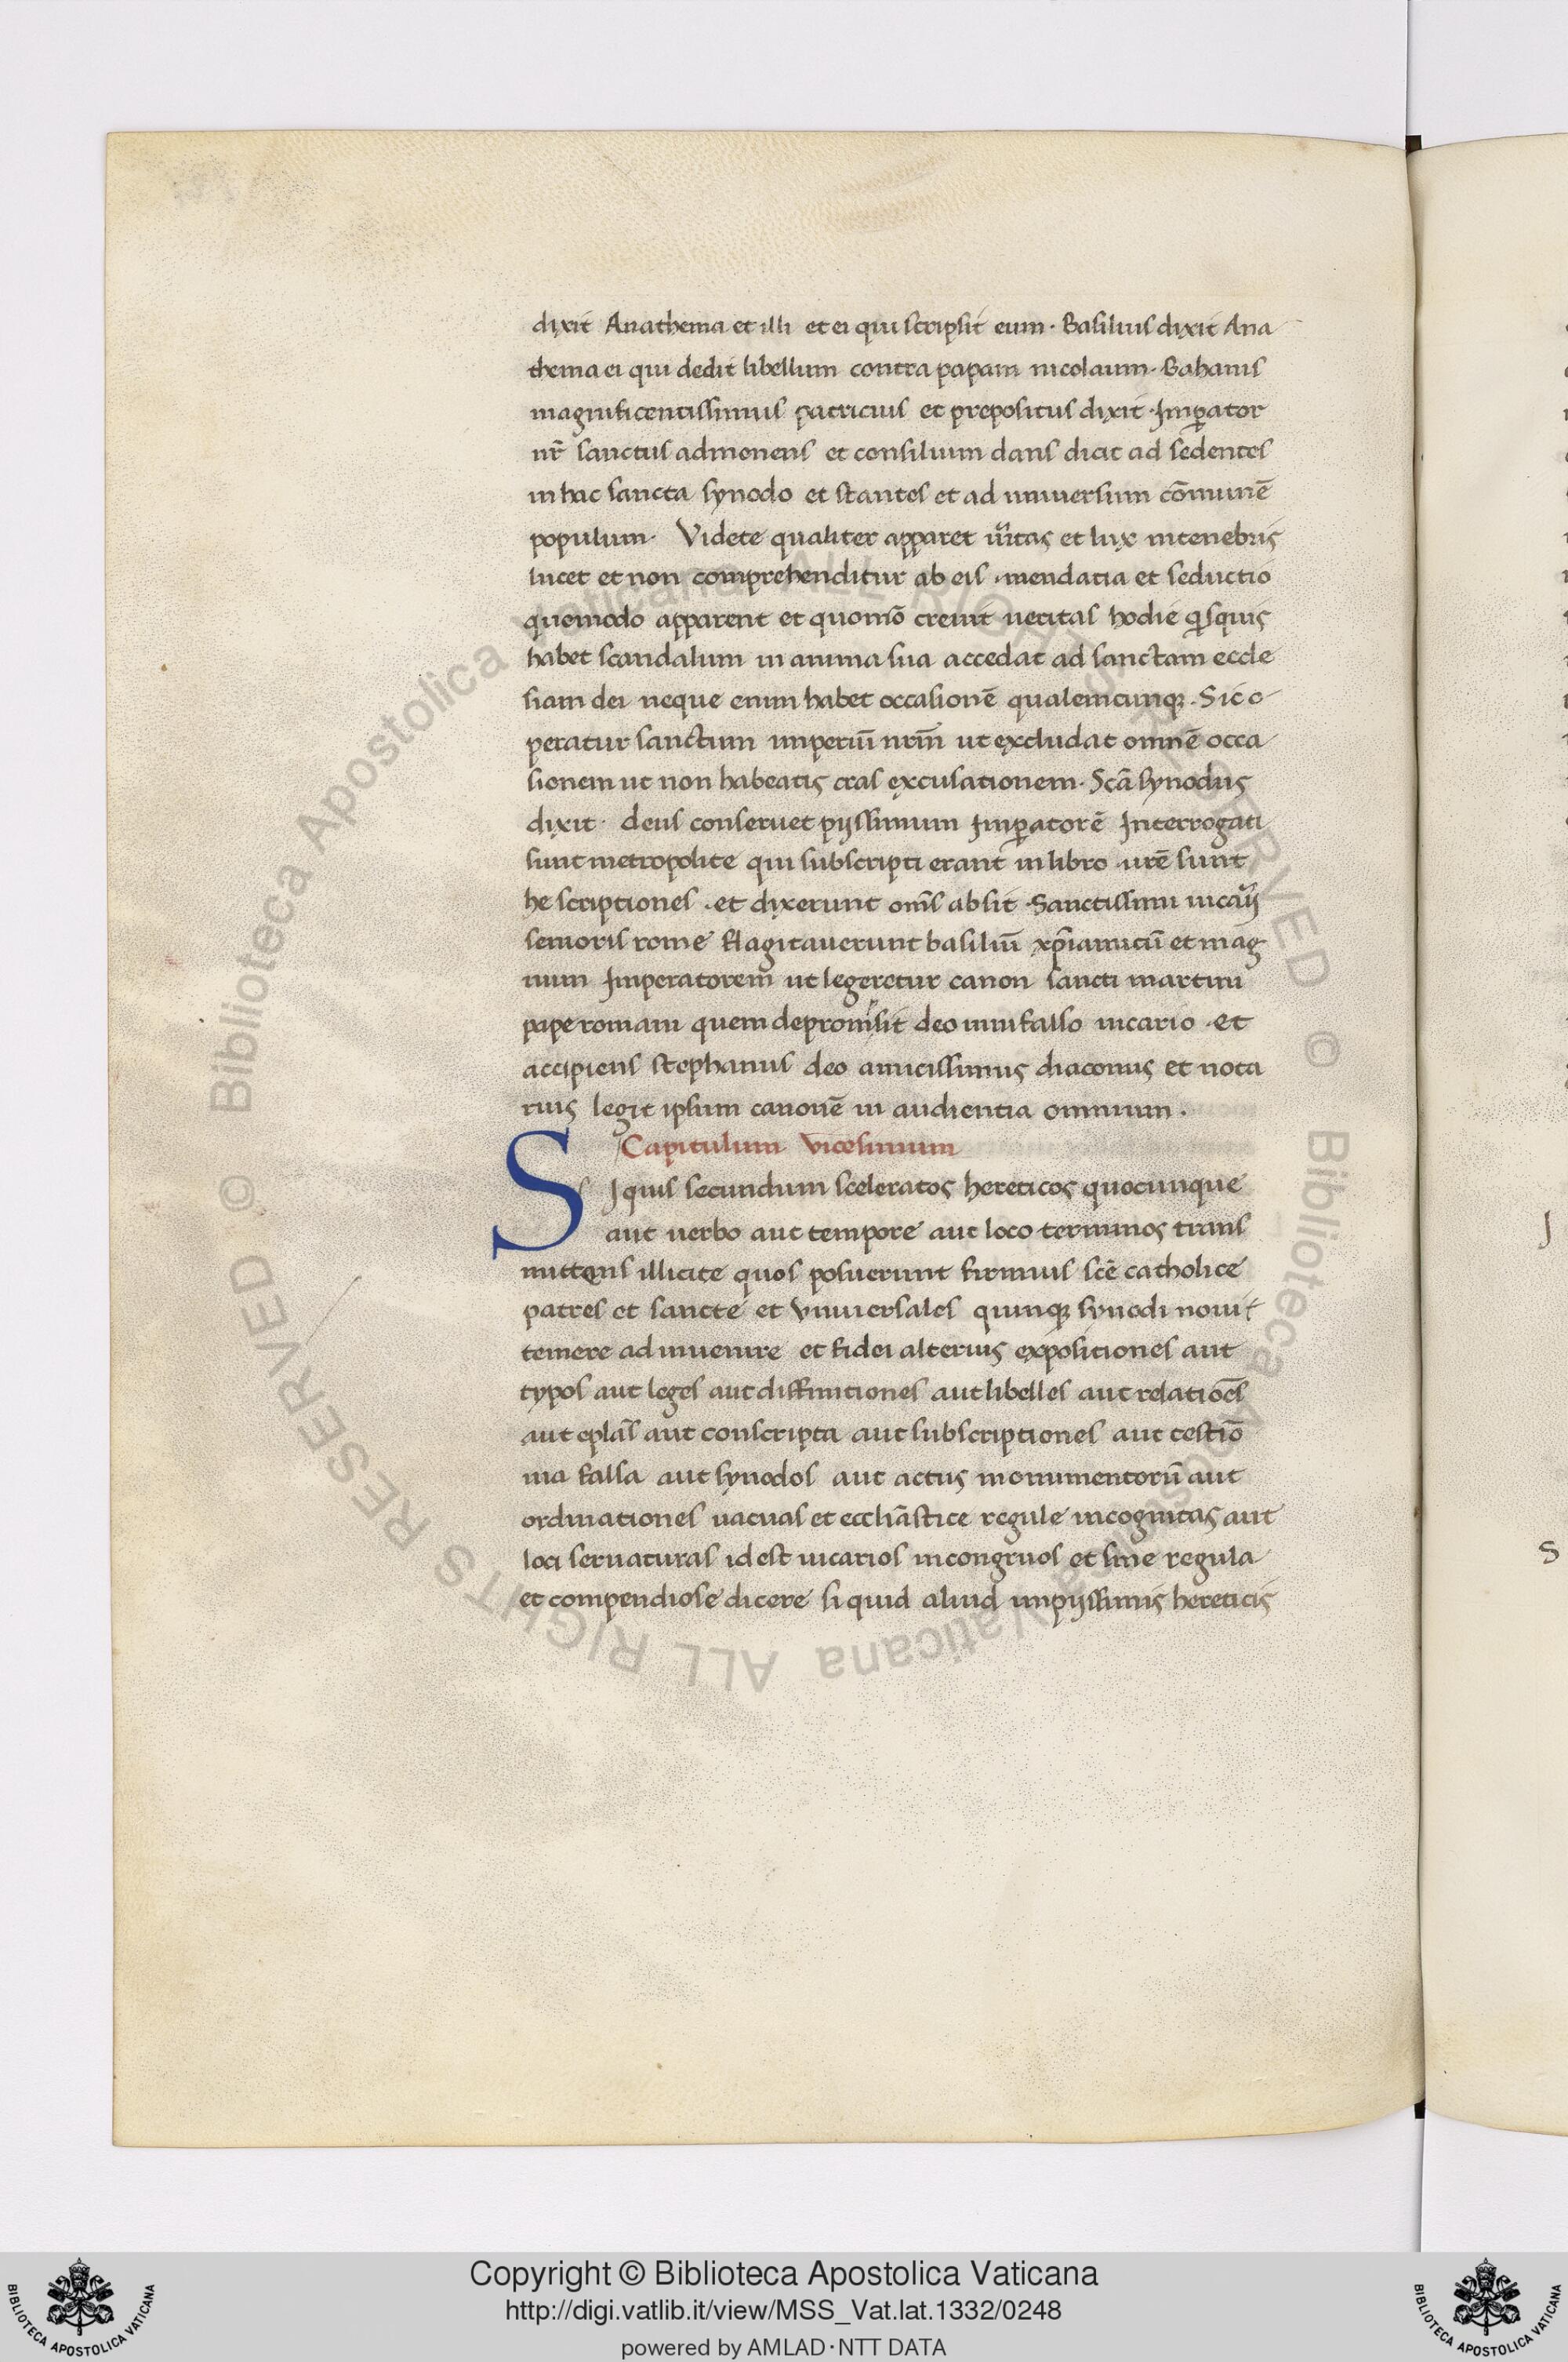 dixit Anathema et illi et ei qui scripsit eum · Basilius dixit Ana
thema ei qui dedit libellum contra papam nicolaum · Bahanis
magnificentissimus patricius et prepositus dixit · Imꝑator
nr̄ sanctus admonens et consilium dans dicit ad sedentes
in hac sancta synodo et stantes et ad uniuersum cōmunē
populum · Videte qualiter apparet ueritas et lux in tenebris
lucet et non comprehenditur ab eis · mendatia et seductio
quemodo apparent et quomō creuit ueritas hodie qisquis
habet scandalum in anima sua accedat ad sanctam eccle
siam dei neque enim habet occasionē qualemcunqꝫ · Sic o
peratur sanctum imperiū nrm̄ ut excludat omnē occa
sionem ut non habeatis cras excusationem · Scā synodus
dixit · deus conseruet pijssimum Imꝑatorē Interrogati
sunt metropolite qui subscripti erant in libro · urē sunt
he scriptiones · et dixerunt oms̄ absit · Sanctissimi uicarij
senioris rome flagitauerunt basiliū xp̄i amicū et mag
num Imperatorem ut legeretur canon sancti martini
pape romani quem depromisit deo inuifallo uicario · et
accipiens stephanus deo amicissimus diaconus et nota
rius legit ipsum canonē in audientia omnium ·
Capitulum vicesimum
SI quis secundum sceleratos hereticos quocunque
aut uerbo aut tempore aut loco terminos trans
mittens illicite quos posuerunt firmius scē catholice
patres et sancte et vniuersales quinqꝫ synodi noui
temere ad inuenire et fidei alterius expositiones aut
typos aut leges aut diffinitiones aut libelles aut relatiōes
aut eplās aut conscripta aut subscriptiones aut testiō
nia falsa aut synodos aut actus monumentorū aut
ordinationes uacuas et eccliāstice regule incognitas aut
loci seruaturas id est uicarios incongruos et sine regula
et compendiose dicere si quid aliud impijssimis hereticis
J
S
Copyright © Biblioteca Apostolica Vaticana
http://digi.vatlib.it/view/MSS_Vat.lat.1332/0248
powered by AMLAD·NTT DATA
BIBLIOTECA APOSTOLICA VATICANA
BIBLIOTECA APOSTOLICA VATICANA
© Biblioteca Apostolica Vaticana ALL RIGHTS RESERVED © Biblioteca Apostolica Vaticana ALL RIGHTS RESERVED